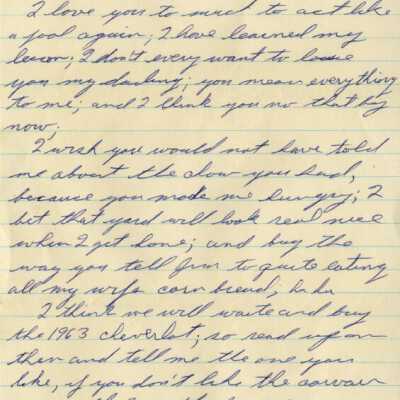 I love you to much to act like
a fool again; I have learned my
lesson; I don't every want to loose
you my darling; you mean everything
to me; and I think you no that by
now;
I wish you would not have told
me about the chow you had,
because you made me hungry; I
bet that yard will look real nice
when I get home; and buy the
way you tell Jim to quite eating
all my wife corn bread, ha ha
I think we will waite and buy
the 1963 cheverlot; so read up on
them and tell me the one you
like, if you don't like the corvair